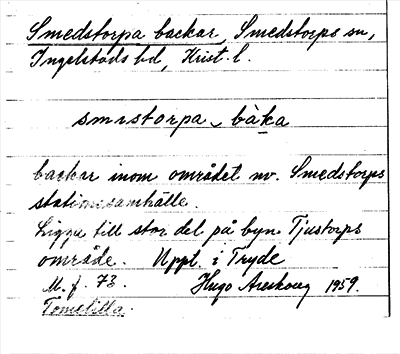 Smedstorpa backar, Smedstorps sn,
Ingelstads hd, Krist. l.
smistorpa bàka
backar inom området nv. Smedstorps
stationssamhälle.
Ligga till stor del på byn Tjustorps
område. Uppt. i Tryde
M. f. 73. Hugo Areskoug 1959.
Tomelilla.